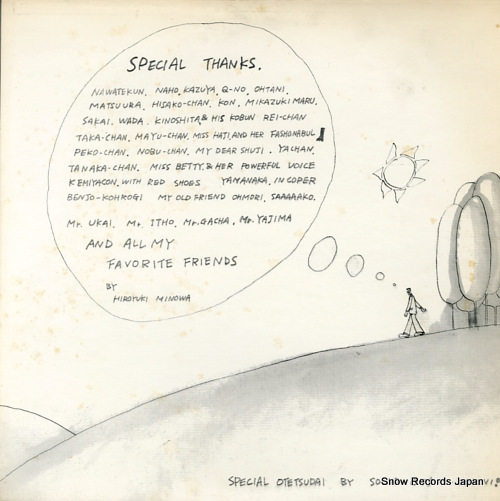 SPECIAL THANKS.
NAWATEKUN. NAHO, KAZUYA. Q-NO. OHTANI.
MATSUURA. HISAKO-CHAN. KON. MIKAZUKI MARU.
SAKAI. WADA. KINOSHITA & HIS KOBUN REI-CHAN
TAKA-CHAN. MAYU-CHAN. MISS HAJI, AND HER FASHONABUL
PEKO-CHAN. NOBU-CHAN. MY DEAR SHUJI. YACHAN.
TANAKA-CHAN. MISS BETTY. & HER POWERFUL VOICE
KEMIYACON. WITH RED SHOES YAMANAKA. IN COPER
BENJO-KOHROGI MY OLD FRIEND OHMORI. SAAAAAKO.
Mr. UKAI. Mr. ITHO. Mr. GACHA. Mr. YAJIMA
AND ALL MY
FAVORITE FRIENDS
BY
HIROYUKI MINOWA
SPECIAL OTETSUDAI BY
Snow Records Japan